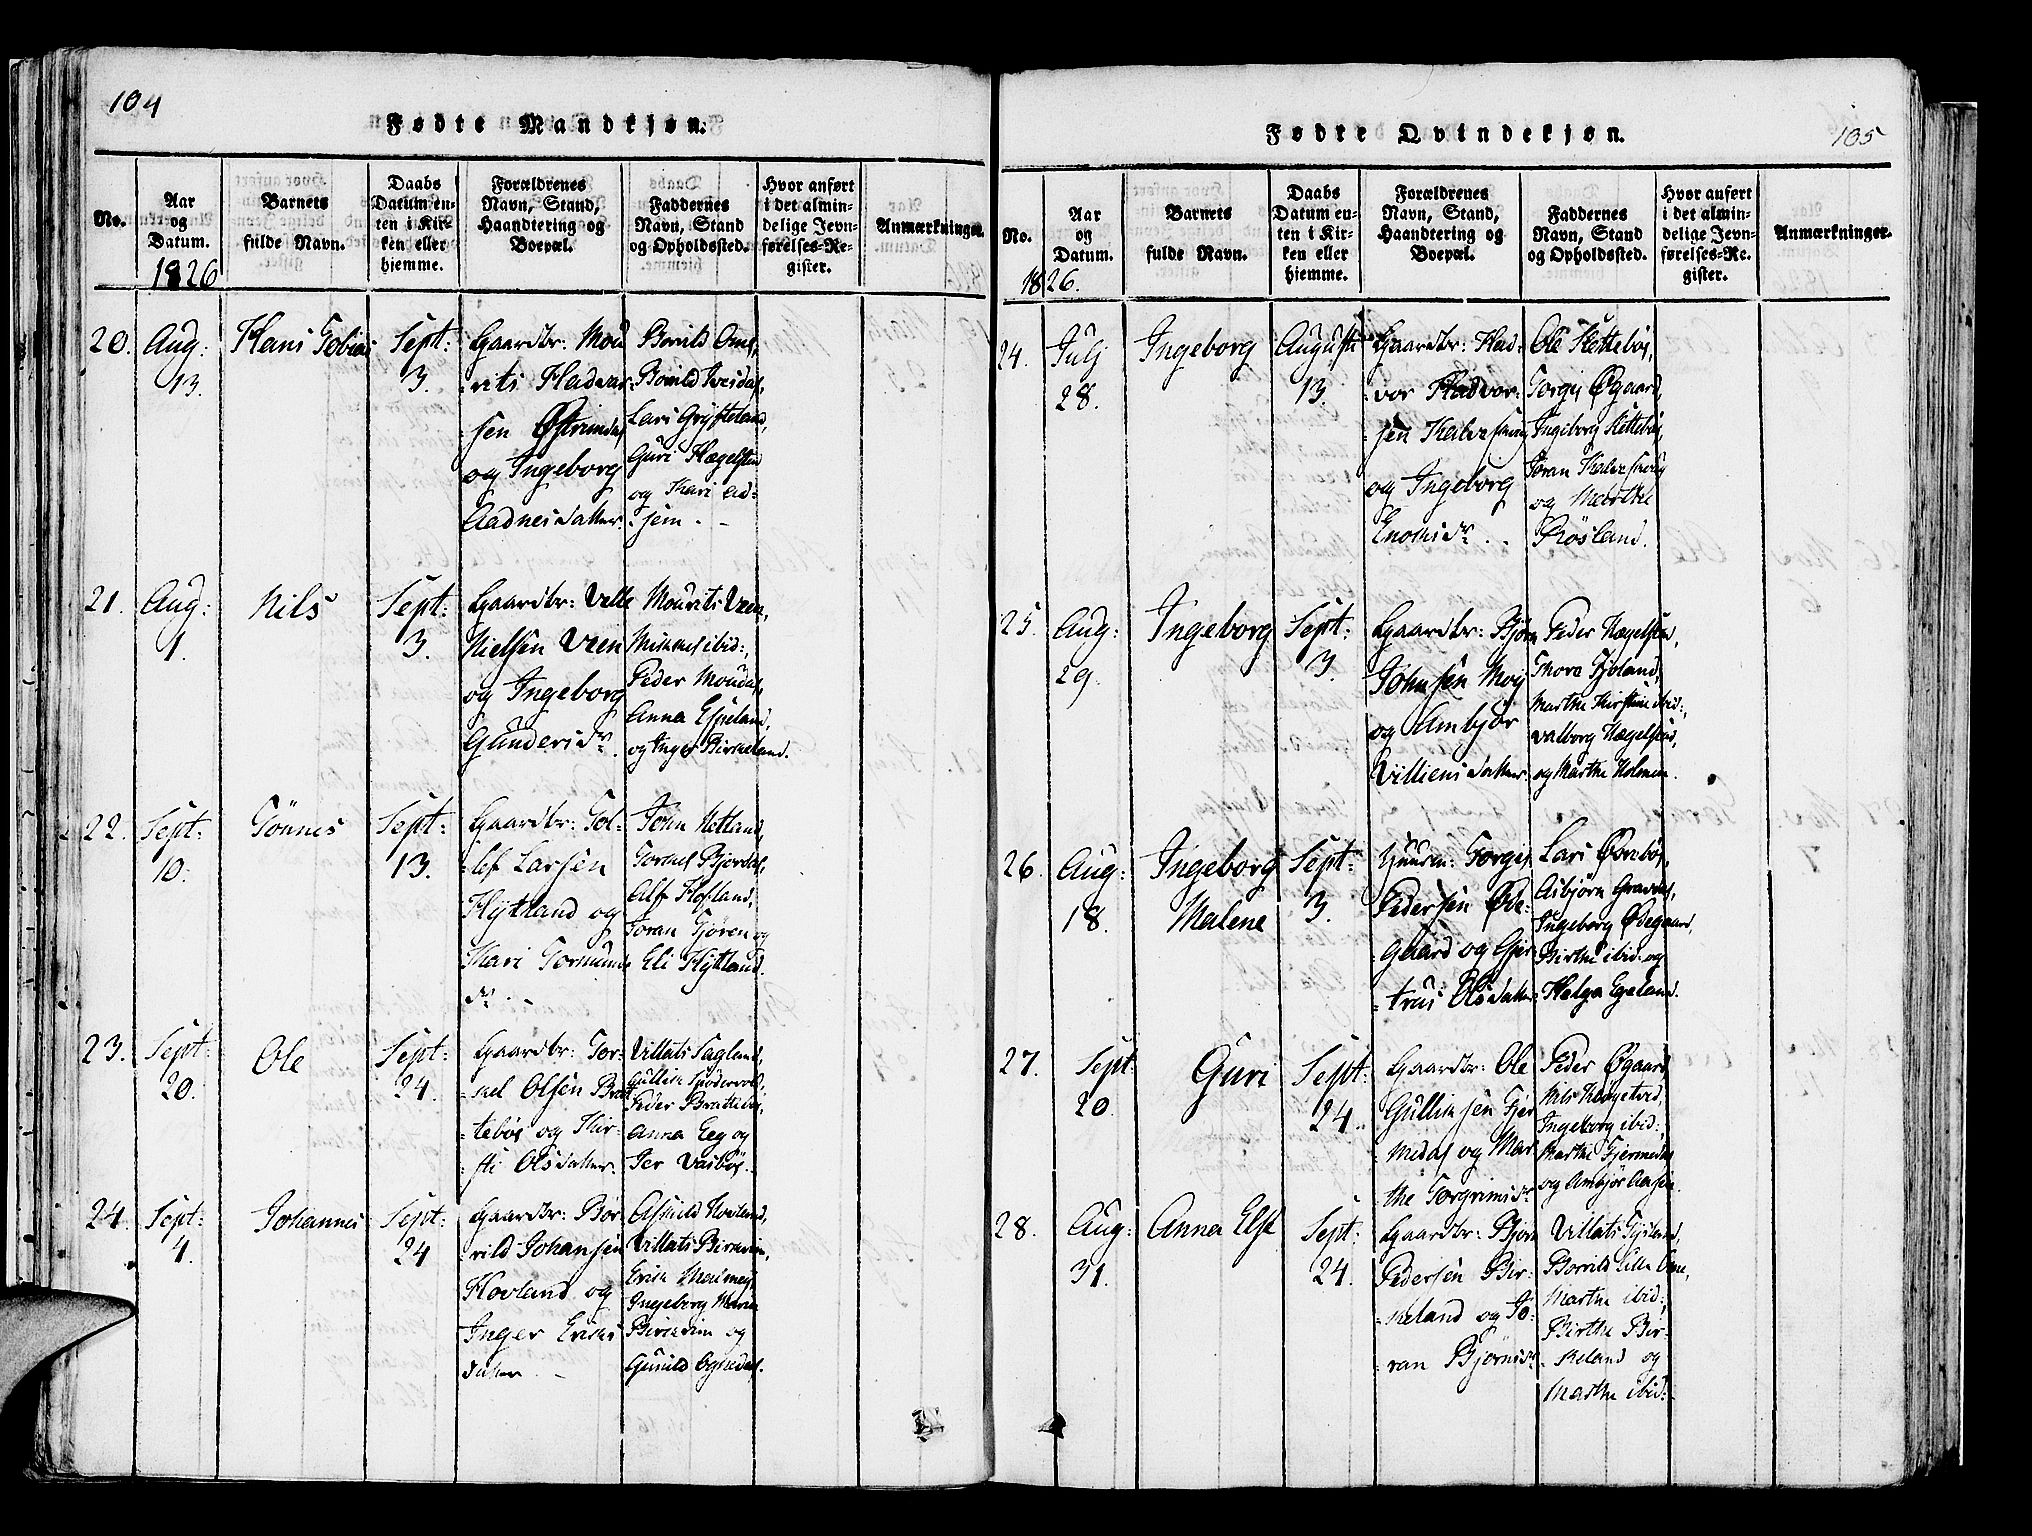 104
Fødte Mandkjøn.
No.
Aar
og
Datum.
1826
Barnets
fulde Navn.
Daabs
Datum en-
ten i Kir-
ken eller
hjemme.
Forældrenes
Navn, Stand,
Haandtering og
Boepæl.
Faddernes
Navn, Stand
og Opholdssted.
Hvor anført
i det almin-
delige Jevn-
førelses-Re-
gister.
Anmærkninger.
20.
Aug:
13.
Hans Tobias
Sept:
3.
Gaardbr: Mou
-rits Hadvar-
-sen
og Ingeborg
Aadnesdatter.
Borild Omd,
Borild Ivesdal,
Lars Grysteland,
Guri Hægelstad
og Kari Ad-
-sem.
21.
Aug:
1.
Nils
Sept:
3.
Gaardbr: Velle
Nielsen Veen
og Ingeborg
Gundersdr.
Mourits Veen,
ibid:,
Peder Moudal,
Anna Espeland,
og Inger Birkeland.
22.
Sept:
10.
Tønnes
Sept:
13.
Gaardbr: Tol-
-lef Larsen
Hÿtland og
Kari Tormunds
dr.
John Netland,
Tormel Bjordal,
Alf Hofland,
Joran Tjøren og
Eli Hÿtland.
23.
Sept:
20.
Ole
Sept:
24.
Gaardbr: Tor-
-kel Olsen Brat-
-tebøe og Kir-
-sti Olsdatter.
Villats Sagland,
Peder Brattebøe,
Anna Eeg og
24.
Sept:
4.
Johannes
Sept:
24
Gaardbr: Bor
-rild Johansen
Hovland og
Inger Erics
datter
Asmild Hovland,
Villats Birkrim,
Erik
Ingeborg Maria
Birkrim og
Gunild Ognedal.
Fødte Qvindekjøn.
105
No.
Aar
og
Datum.
1826.
Barnets
fulde Navn.
Daabs
Datum en-
ten i Kir-
ken eller
hjemme.
Forældrenes
Navn, Stand,
Haandtering og
Boepæl.
Faddernes
Navn, Stand
og Opholdssted.
Hvor anført
i det almin-
delige Jevn-
førelses-Re-
gister.
Anmærkninger.
24.
Julj
28.
Ingeborg
August
13.
Gaardbr: Had-
-vor Hadvor-
-sen
og Ingeborg
Enoksdr.
Ole Slettebøe,
Torgis Øgaard,
Ingeborg Slettebøe,
Joran
og Marthe
Røsland.
25.
Aug:
29.
Ingeborg
Sept:
3.
Gaardbr: Bjørn
Johnsen Moÿ
og Ambjør
Villiensdatter.
Peder Hægelstad,
Thore Fjoland,
Marthe Kirstine ibid:,
Valborg Hægelstad,
og Marthe Holmen.
26.
Aug:
18.
Ingeborg
Malene
Sept:
3.
Huusm: Torgis
Pedersen Øde-
-gaard og Gjer-
-trud Olsdatter.
Lars Ørebøe,
Asbjørn Gravdal,
Ingeborg Ødegaard,
Birthe ibid: og
Helga Egeland.
27.
Sept:
20.
Guri
Sept:
24.
Gaardbr: Ole
Gulliksen Fjer-
-medal og Mar-
the Torgrimsdr.
Peder Øgaard,
Nils
Ingeborg ibid:,
Marthe Fjermedal
og Ambjør Aasen.
28.
Aug:
31.
Anna Else
Sept:
24.
Gaardbr: Bjørn
Pedersen Bir-
-keland og Jo-
-ran Bjørnsdr.
Villats
Borrild Omd,
Marthe ibid:,
Birthe Bir-
-keland og
Marthe ibid:.